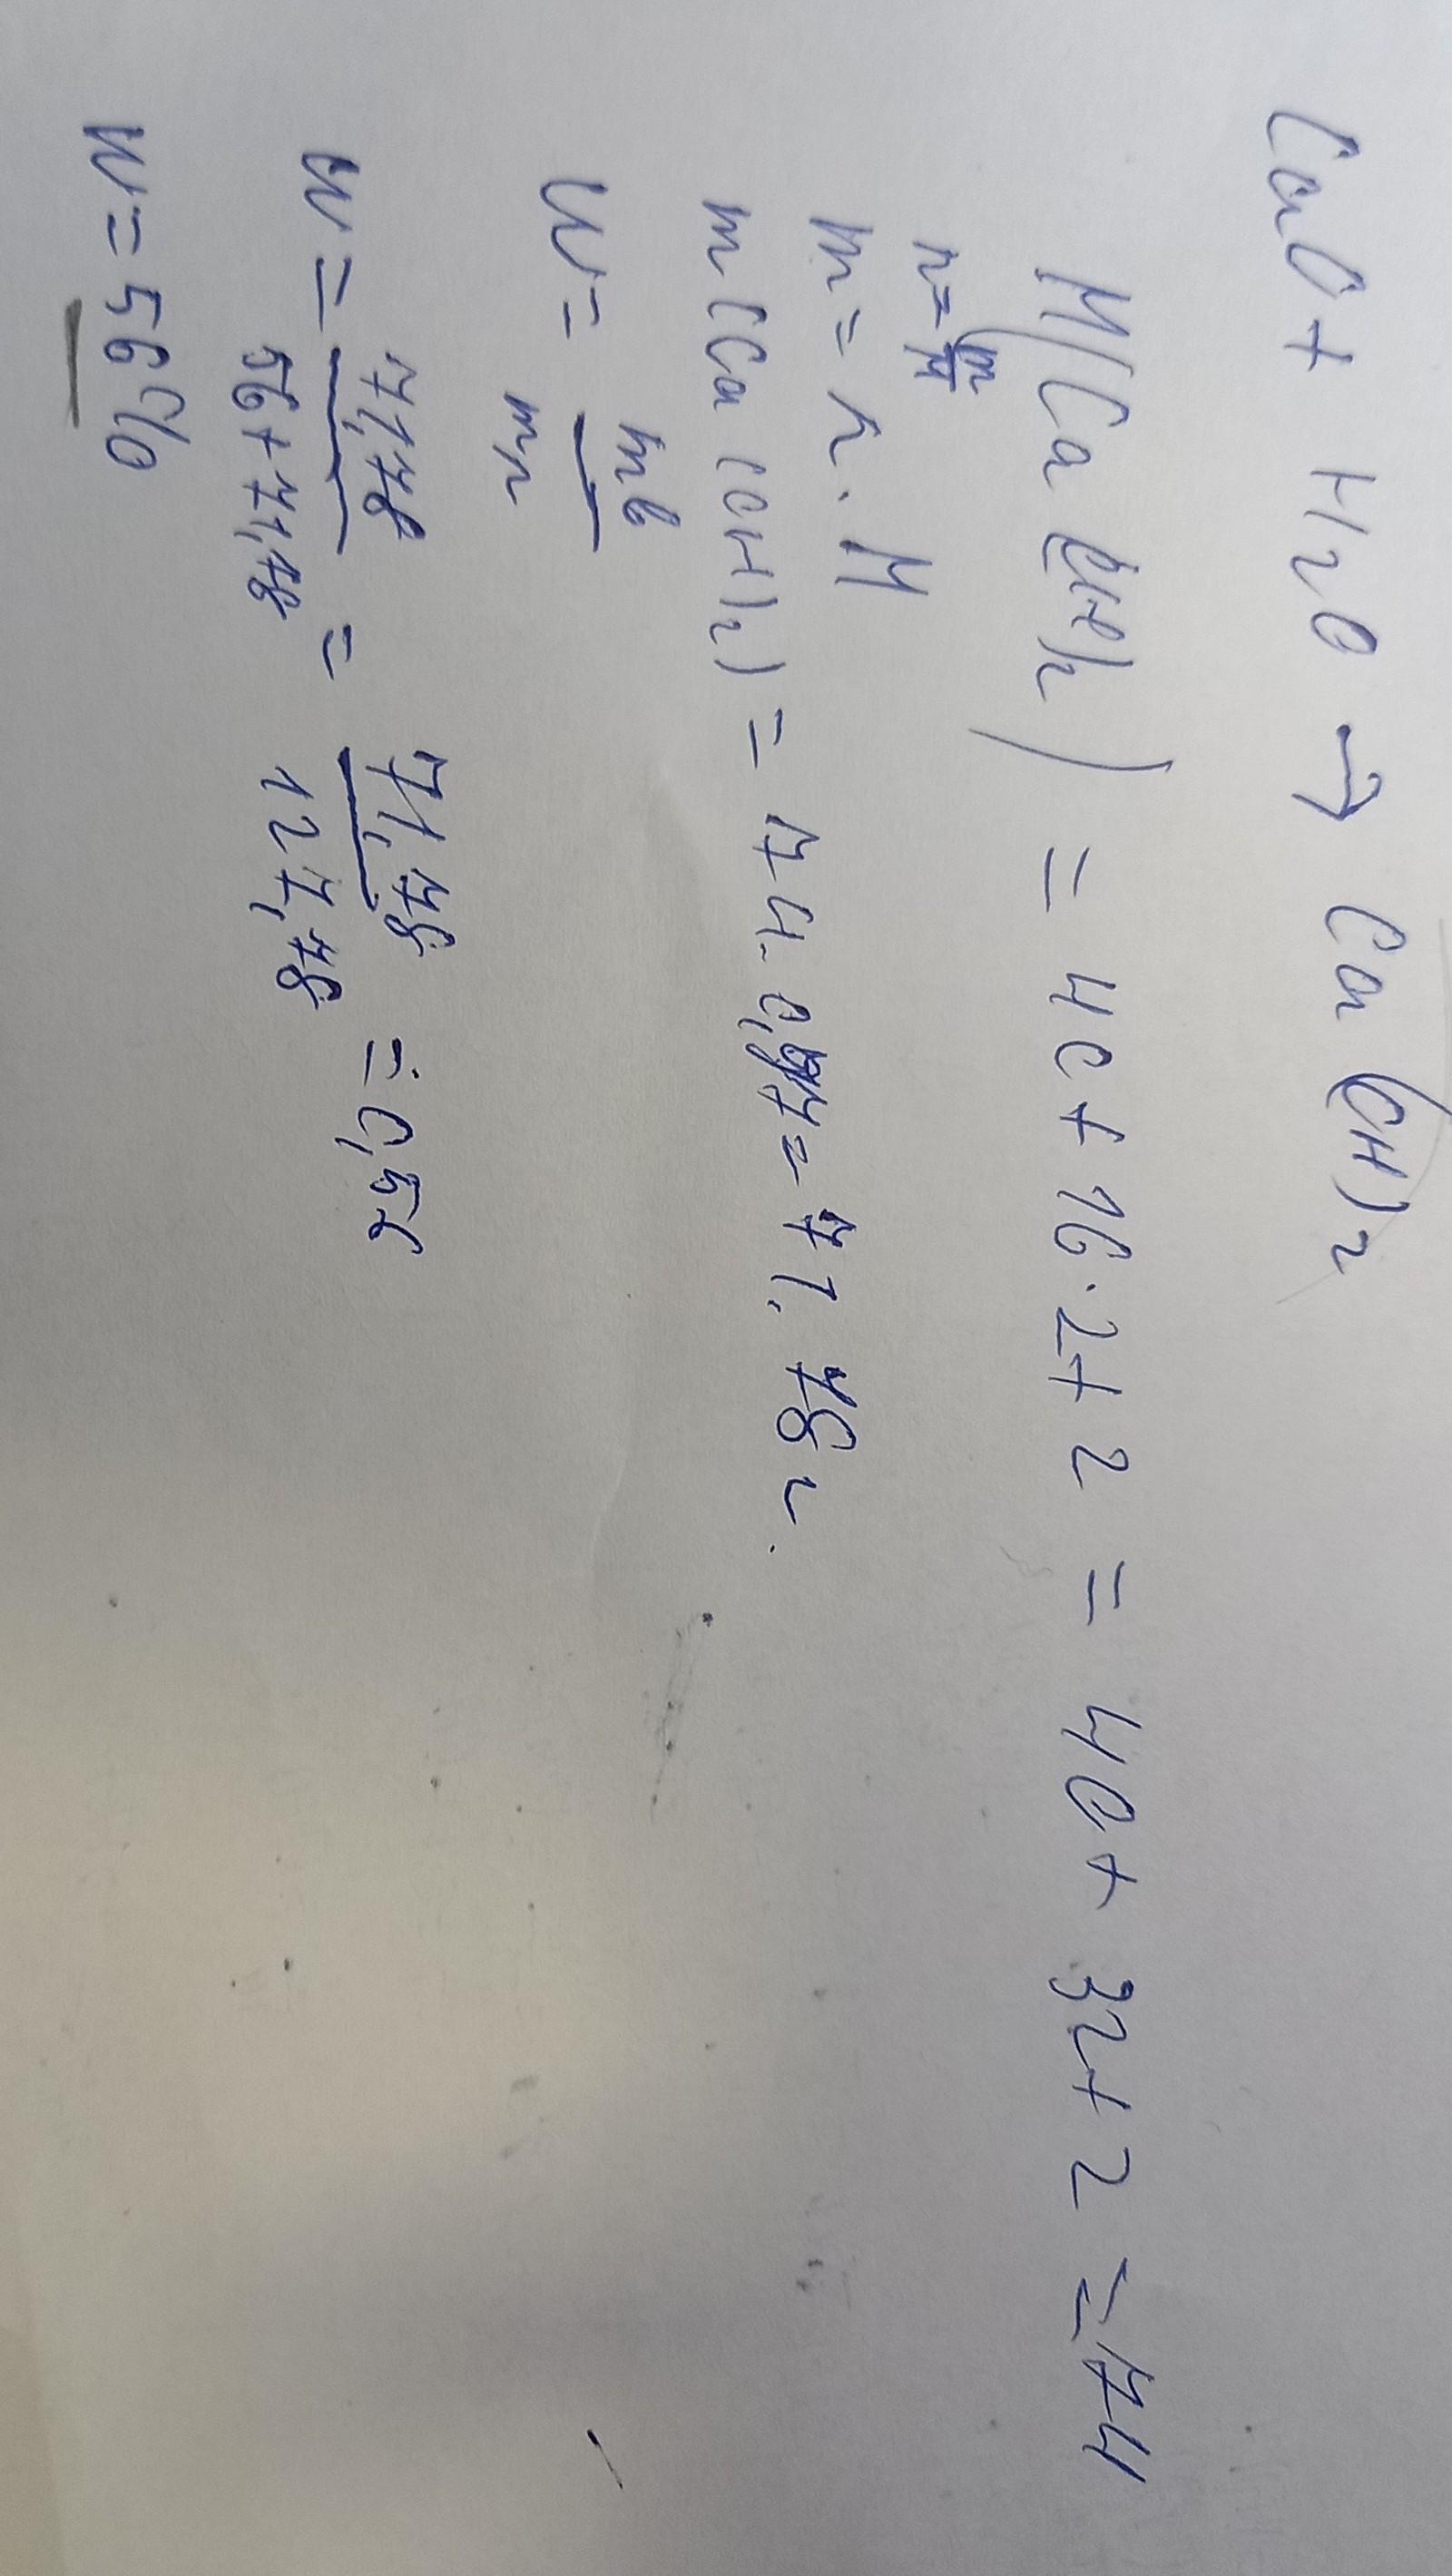 CaO + H2O → Ca(OH)2
M(Ca(OH)2) = 40 + 16·2 + 2 = 40 + 32 + 2 = 74
n = m/M
m = n · M
m(Ca(OH)2) = 74 · 0,97 = 71,78 г.
W = mв/mр
W = 71,78/56+71,78 = 71,78/127,78 = 0,56
W = 56%